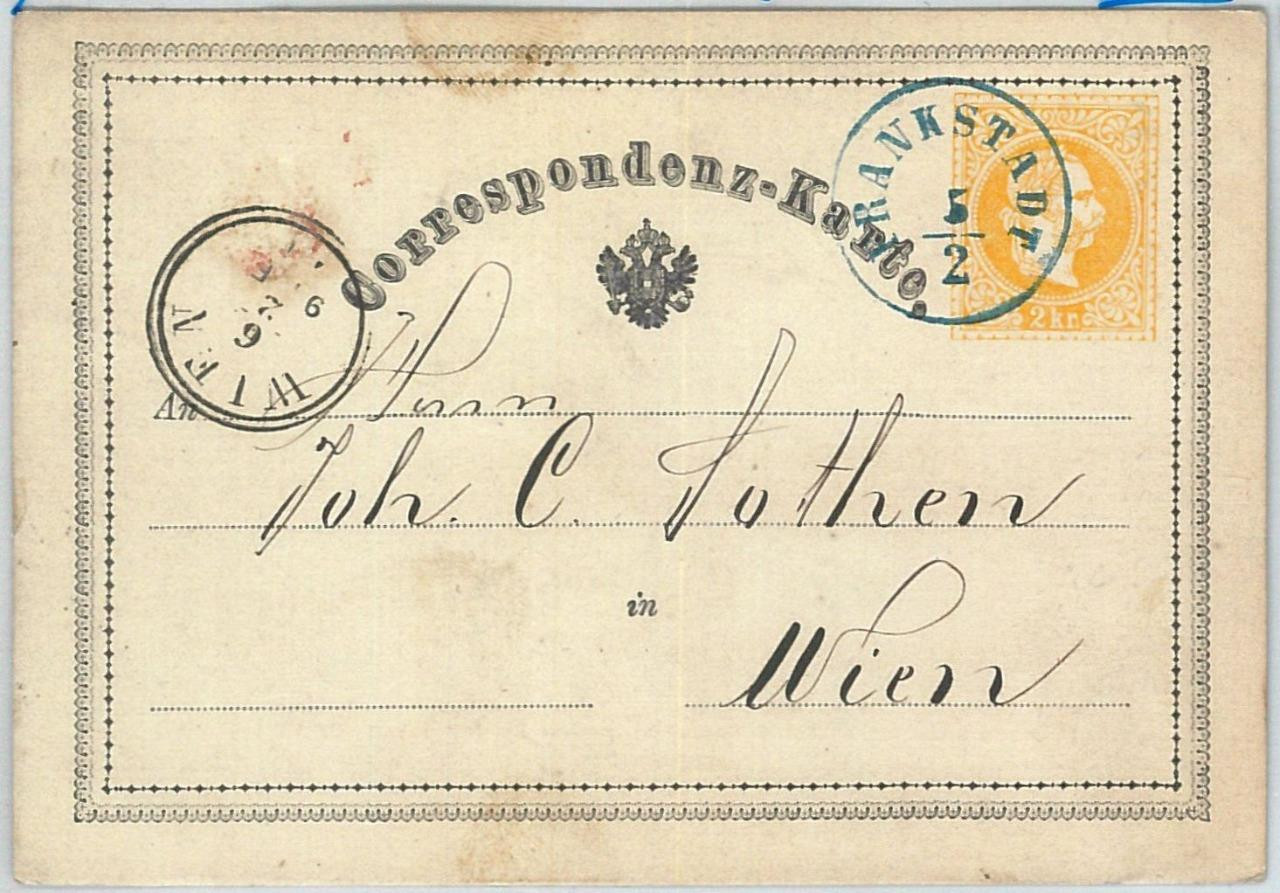 Correspondenz-Karte.
FRANKSTADT
5
2
2 kr.
WIEN
6
2
An
Herrn
Joh. C. Sothen
in
Wien